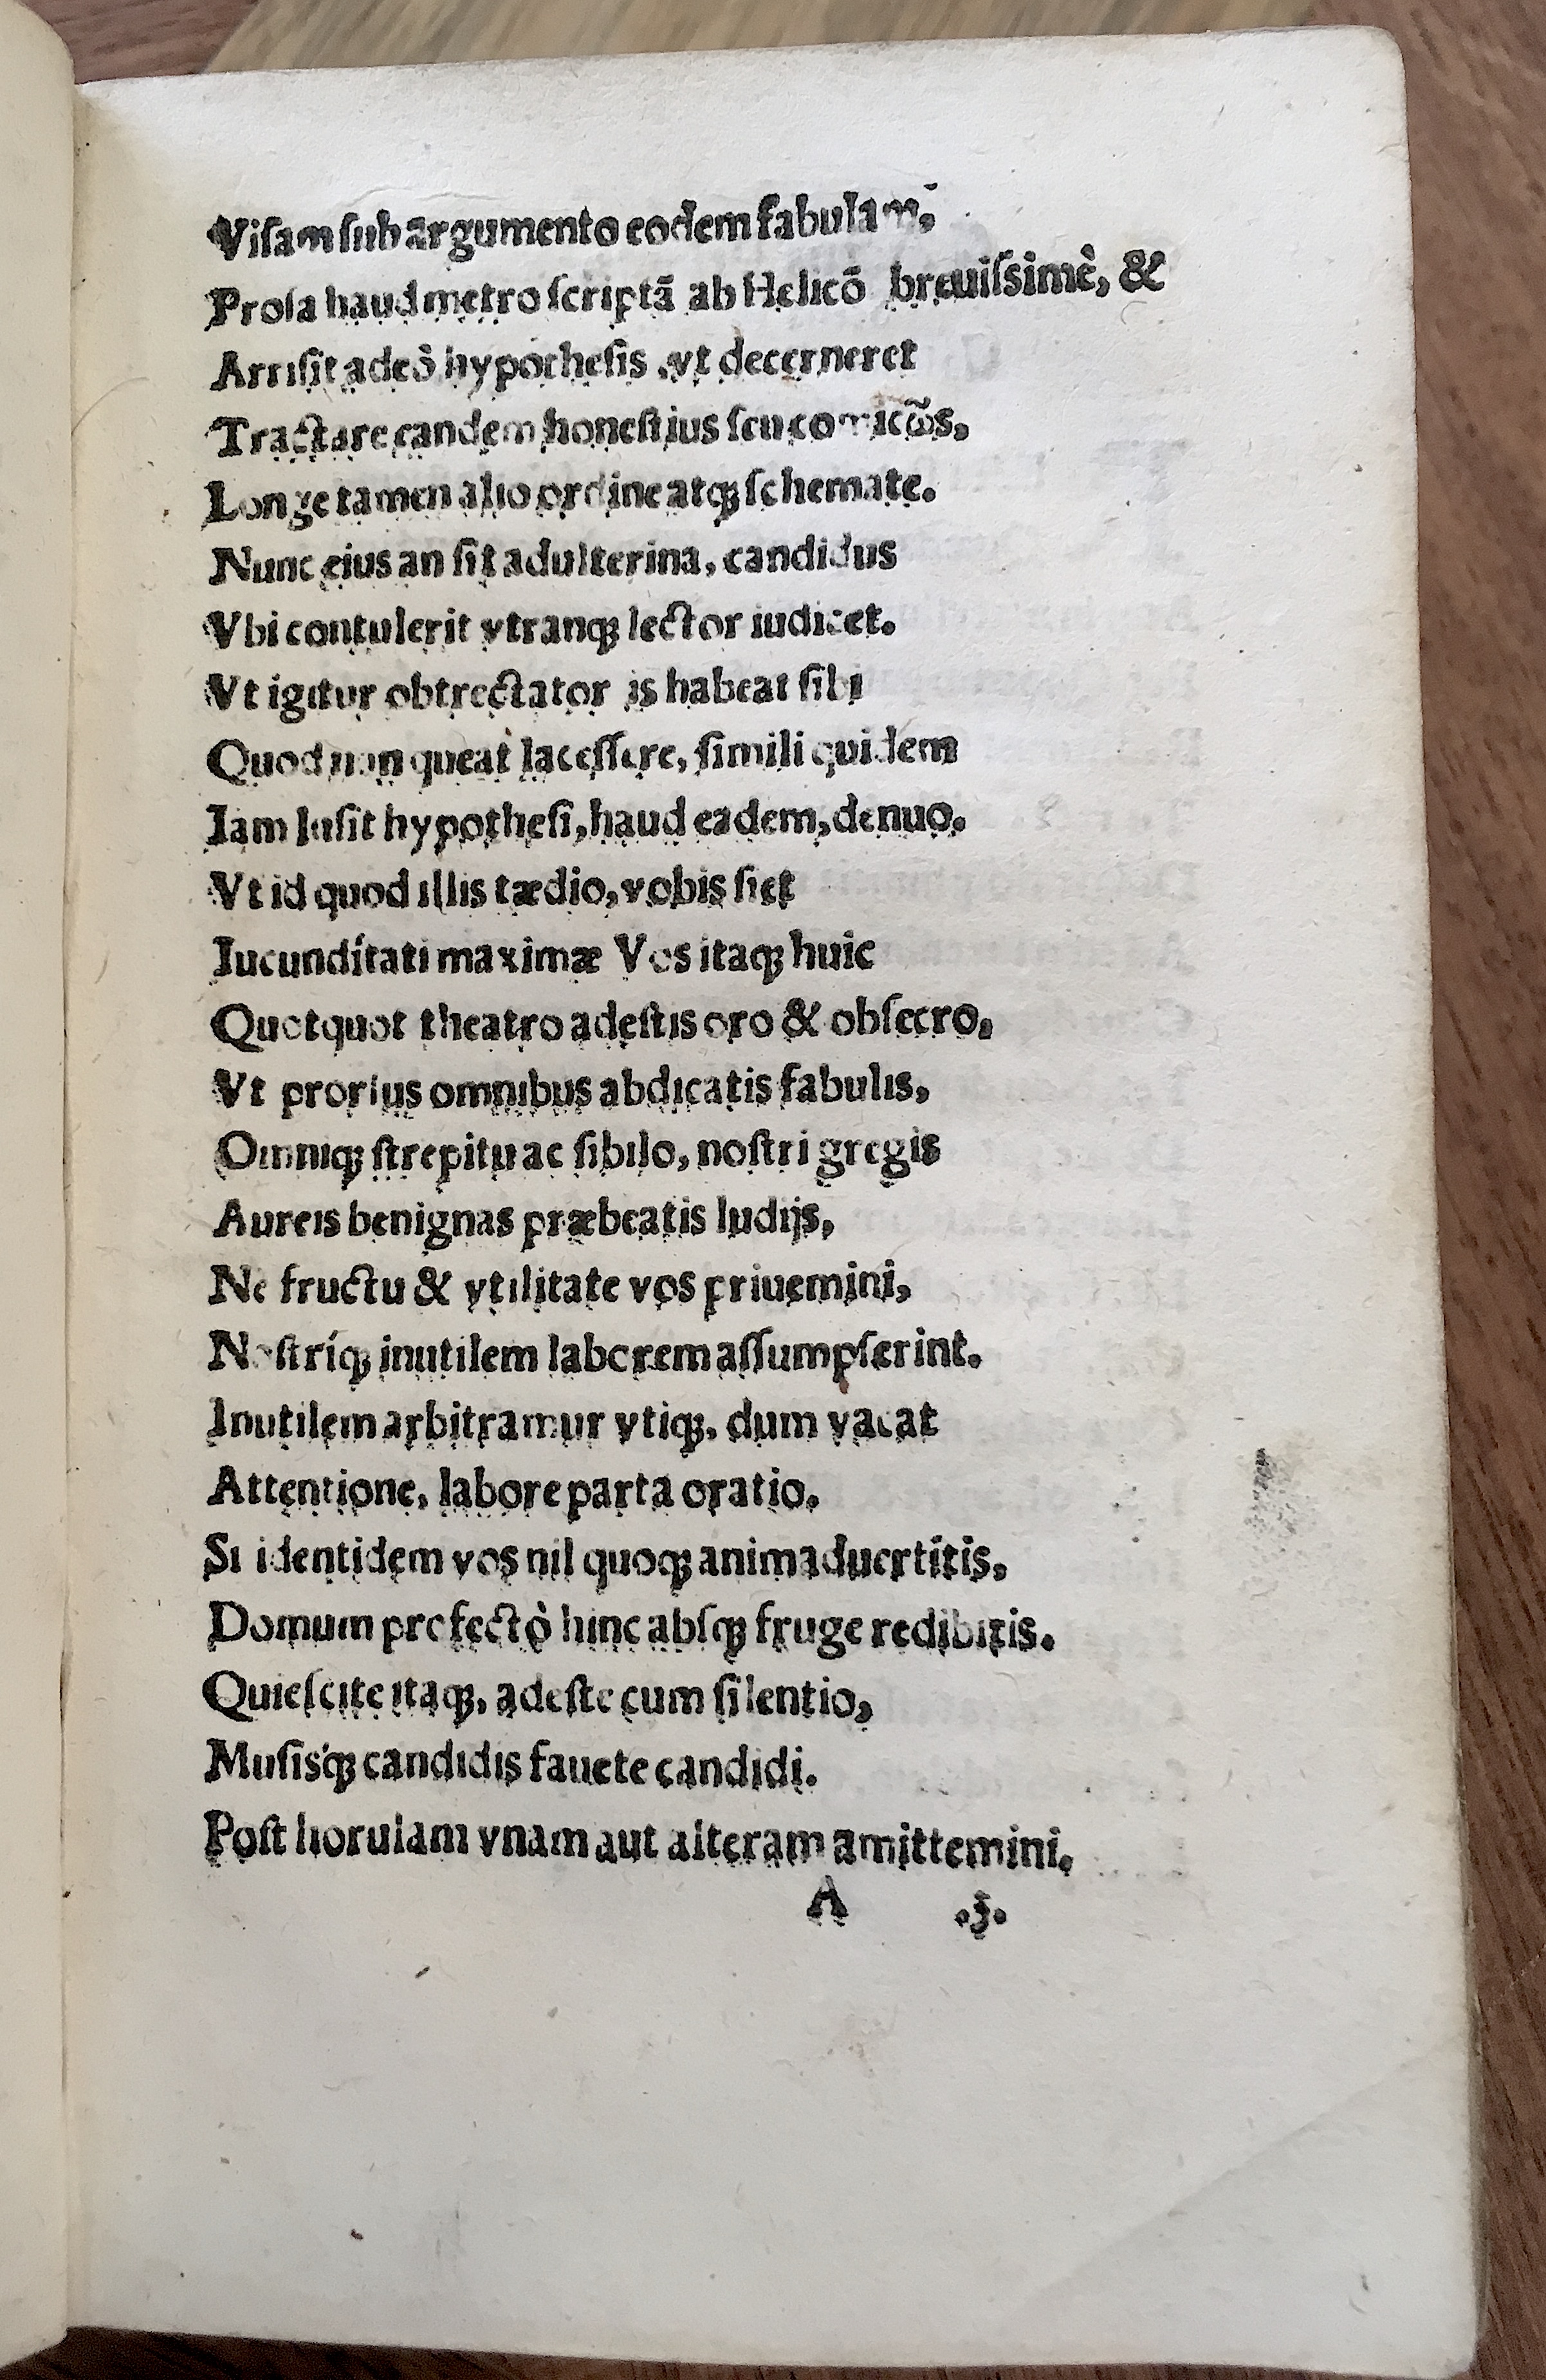 Viſam ſub argumento eodem fabulam,
Proſa haud metro ſcriptā ab Helicō breuiſsimè, &
Arriſit adeò hypotheſis, vt decerneret
Tractare eandem honeſtius ſeu comicω̃s,
Longe tamen alio ordine atqꝫ ſchemate.
Nunc eius an ſit adulterina, candidus
Vbi contulerit vtranqꝫ lector iudicet.
Vt igitur obtrectator is habeat ſibi
Quod non queat laceſſere, ſimili quidem
Iam luſit hypotheſi, haud eadem, denuo.
Vt id quod illis tædio, vobis ſiet
Iucundítati maximæ Vos itaqꝫ huic
Quotquot theatro adeſtis oro & obſecro,
Vt prorſus omnibus abdicatis fabulis,
Omniqꝫ ſtrepitu ac ſibilo, noſtri gregis
Aureis benignas præbeatis ludijs,
Ne fructu & vtilitate vos priuemini,
Noſtríqꝫ inutilem laborem aſſumpſerint.
Inutilem arbitramur vtiqꝫ, dum vacat
Attentione, labore parta oratio.
Si identidem vos nil quoqꝫ animaduertitis,
Domum profectò hinc abſqꝫ fruge redibitis.
Quieſcite itaqꝫ, adeſte cum ſilentio,
Muſisqꝫ candidis fauete candidi.
Poſt horulam vnam aut alteram amittemini.
A .3.